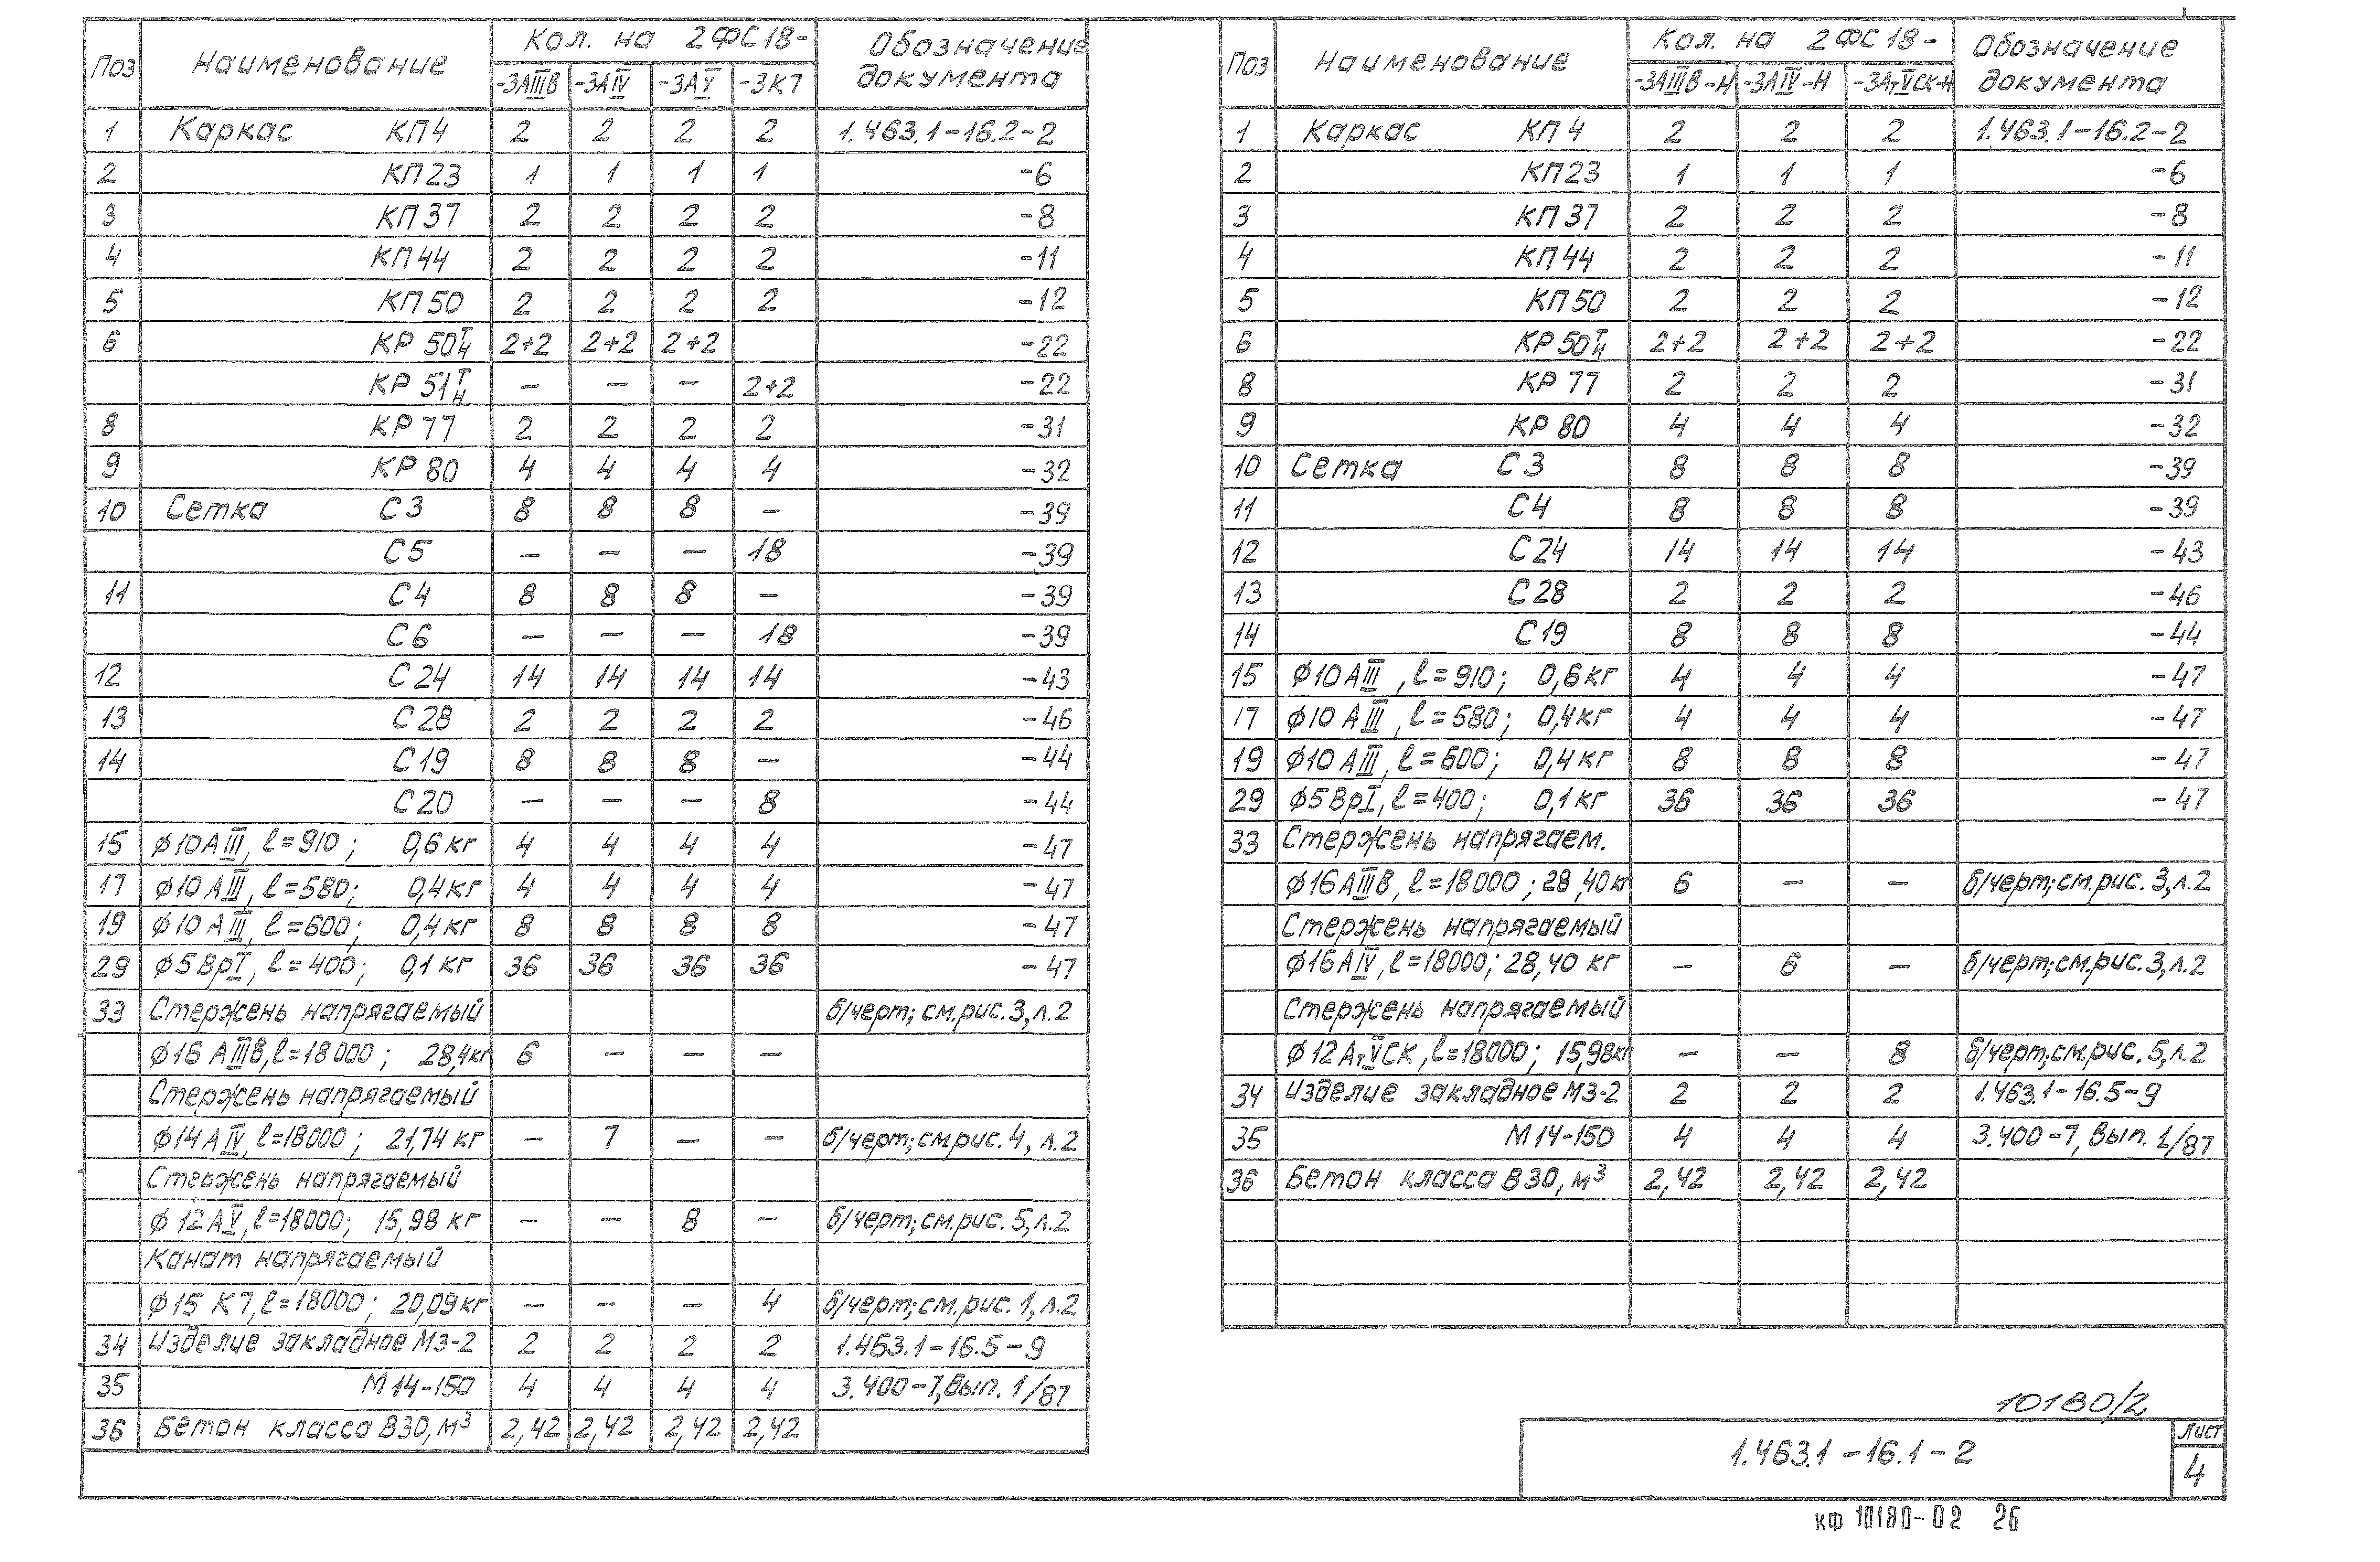 Поз Наименование Кол. на 2ФС18- Обозначение документа
-3АIIIв -3АIV -3АV -3К7
1 Каркас КП4 2 2 2 2 1.463.1-16.2-2
2 КП23 1 1 1 1 -6
3 КП37 2 2 2 2 -8
4 КП44 2 2 2 2 -11
5 КП50 2 2 2 2 -12
6 КР 50Т/Н 2+2 2+2 2+2 -22
КР 51Т/Н — — — 2+2 -22
8 КР 77 2 2 2 2 -31
9 КР 80 4 4 4 4 -32
10 Сетка С3 8 8 8 — -39
С5 — — — 18 -39
11 С4 8 8 8 — -39
С6 — — — 18 -39
12 С24 14 14 14 14 -43
13 С28 2 2 2 2 -46
14 С19 8 8 8 — -44
С20 — — — 8 -44
15 ф10АIII, ℓ=910; 0,6кг 4 4 4 4 -47
17 ф10АIII, ℓ=580; 0,4кг 4 4 4 4 -47
19 ф10АIII, ℓ=600; 0,4кг 8 8 8 8 -47
29 ф5ВрI, ℓ=400; 0,1кг 36 36 36 36 -47
33 Стержень напрягаемый б/черт; см.рис.3,л.2
ф16 АIIIв, ℓ=18000; 28,4кг 6 — — —
Стержень напрягаемый
ф14АIV, ℓ=18000; 21,74кг — 7 — — б/черт; см.рис.4, л.2
Стержень напрягаемый
ф12АV, ℓ=18000; 15,98 кг — — 8 — б/черт; см.рис.5,л.2
Канат напрягаемый
ф15 К7, ℓ=18000; 20,09кг — — — 4 б/черт; см.рис.1,л.2
34 Изделие закладное М3-2 2 2 2 2 1.463.1-16.5-9
35 М14-150 4 4 4 4 3.400-7, Вып. 1/87
36 Бетон класса В30, м³ 2,42 2,42 2,42 2,42
Поз Наименование Кол. на 2ФС18- Обозначение документа
-3АIIIв-Н -3АIV-Н -3АтVСК-Н
1 Каркас КП4 2 2 2 1.463.1-16.2-2
2 КП23 1 1 1 -6
3 КП37 2 2 2 -8
4 КП44 2 2 2 -11
5 КП50 2 2 2 -12
6 КР50Т/Н 2+2 2+2 2+2 -22
8 КР 77 2 2 2 -31
9 КР 80 4 4 4 -32
10 Сетка С3 8 8 8 -39
11 С4 8 8 8 -39
12 С24 14 14 14 -43
13 С28 2 2 2 -46
14 С19 8 8 8 -44
15 ф10АIII, ℓ=910; 0,6кг 4 4 4 -47
17 ф10АIII, ℓ=580; 0,4кг 4 4 4 -47
19 ф10АIII, ℓ=600; 0,4кг 8 8 8 -47
29 ф5ВрI, ℓ=400; 0,1кг 36 36 36 -47
33 Стержень напрягаем.
ф16АIIIв, ℓ=18000; 28,40кг 6 — — б/черт; см.рис.3,л.2
Стержень напрягаемый
ф16АIV, ℓ=18000; 28,40 кг — 6 — б/черт; см.рис.3,л.2
Стержень напрягаемый
ф12АтVСК, ℓ=18000; 15,98кг — — 8 б/черт; см.рис.5,л.2
34 Изделие закладное М3-2 2 2 2 1.463.1-16.5-9
35 М14-150 4 4 4 3.400-7, Вып. 1/87
36 Бетон класса В30, м³ 2,42 2,42 2,42
10180/2
1.463.1-16.1-2
Лист
4
КФ 10180-02 26